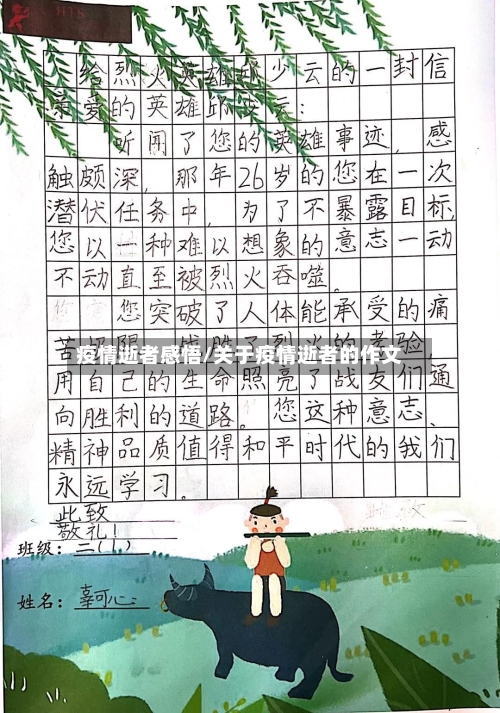 给烈火英雄邱少云的一封信
亲爱的英雄邱少云:
听闻了您的英雄事迹,感
触颇深,那年26岁的您在一次
潜伏任务中,为了不暴露目标,
您以一种难以想象的意志一动
不动直至被烈火吞噬。
您突破了人体能承受的痛
苦极限,战胜了烈火的考验,
疫情逝者感悟/关于疫情逝者的作文
用自己的生命照亮了战友们通
向胜利的道路。您这种意志、
精神品质值得和平时代的我们
永远学习。
此致
敬礼!
班级:三(1)
姓名:辜可心